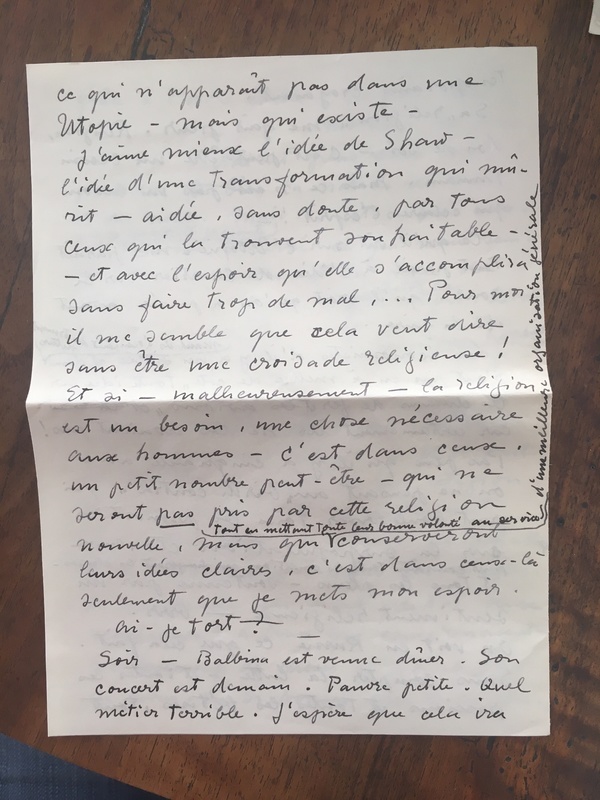 ce qui n'apparaît pas dans une
Utopie – mais qui existe –
J'aime mieux l'idée de Shaw –
l'idée d'une transformation qui mû-
rit – aidée, sans doute, par tous
ceux qui la trouvent souhaitable –
– et avec l'espoir qu'elle s'accomplira
sans faire trop de mal, ... Pour moi
il me semble que cela veut dire
sans être une croisade religieuse !
Et si – malheureusement – la religion
est un besoin, une chose nécessaire
aux hommes – c'est dans ceux,
un petit nombre peut-être – qui ne
seront pas pris par cette religion
tout en mettant toute leur bonne volonté au service
d'une meilleure organisation générale
nouvelle, mais qui conserveront
leurs idées claires, c'est dans ceux-là
seulement que je mets mon espoir.
Ai-je tort ?
Soir – Balbina est venue dîner. Son
concert est demain. Pauvre petite. Quel
métier terrible. J'espère que cela ira